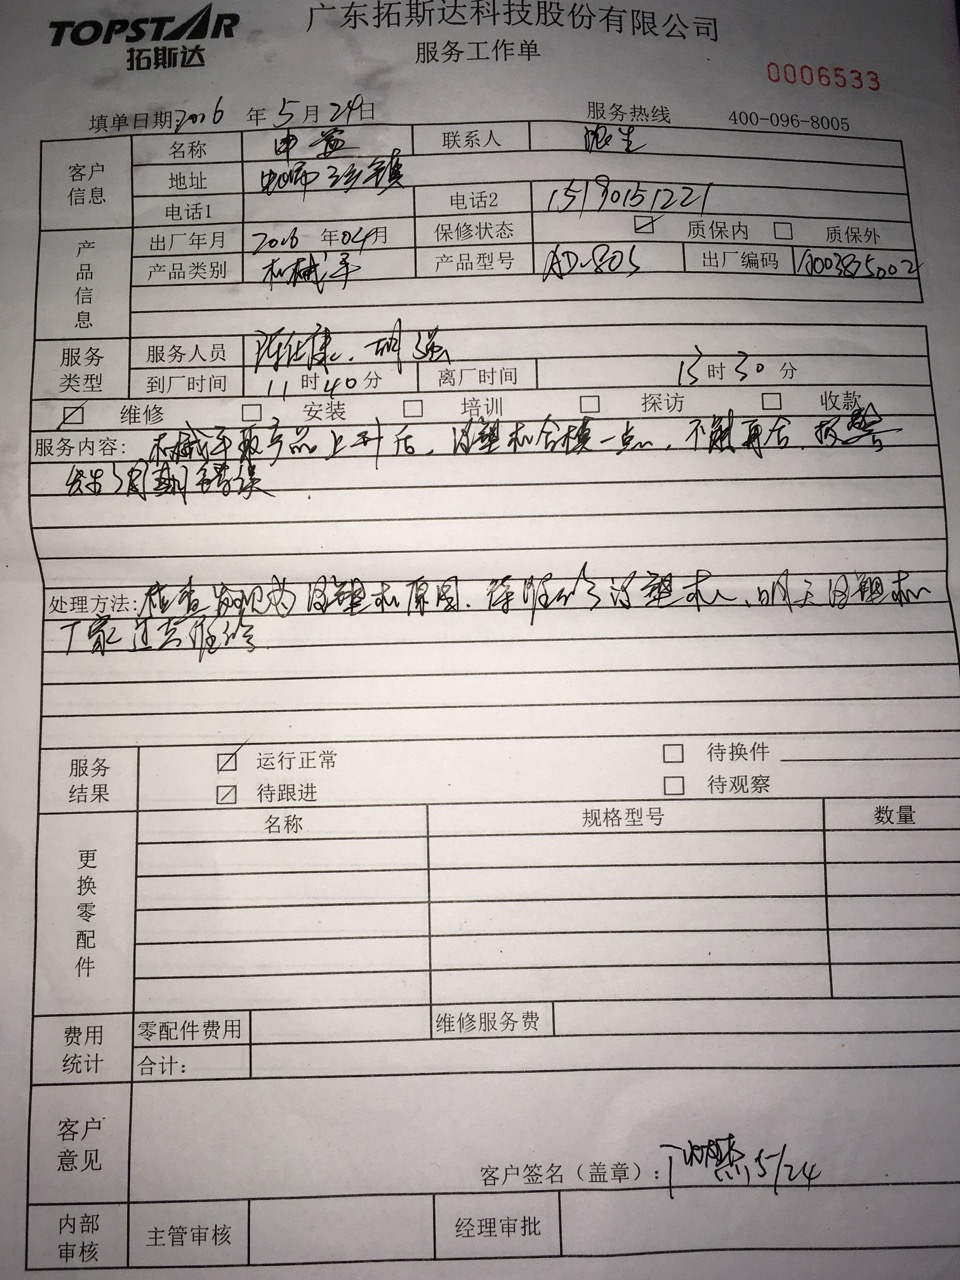 TOPSTAR
拓斯达
广东拓斯达科技股份有限公司
服务工作单
0006533
填单日期: 2016 年 5 月 24 日 服务热线 400-096-8005
客户信息
名称 申益 联系人
地址
电话1 电话2 15190151221
产品信息
出厂年月 2016 年 04 月 保修状态 ☑ 质保内 □ 质保外
产品类别 机械手 产品型号 AD-805 出厂编码 A003875002
服务类型
服务人员 胡强
到厂时间 11 时 40 分 离厂时间 13 时 30 分
☑ 维修 □ 安装 □ 培训 □ 探访 □ 收款
服务内容: 机械手取产品上升后，注塑机合模一点，不能再合，报警
周期错误
处理方法: 检查发现为注塑机原因，待维修注塑机，明天注塑机
厂家过去维修
服务结果
☑ 运行正常 □ 待换件
☑ 待跟进 □ 待观察
更换零配件
名称 规格型号 数量
费用统计
零配件费用 维修服务费
合计：
客户意见
客户签名（盖章）： 5/24
内部审核
主管审核 经理审批